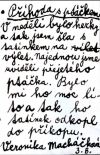 Příhoda s ptáčkem
V neděli bylo hezky
a tak jsem šla s
tatínkem na výlet
výlet. Najednou jsme
uviděli přejetého
ptáčka. Bylo
mi ho moc lí
to a tak ho
tatínek odkopl
do příkopu.
Veronika Macháčková
3.B.